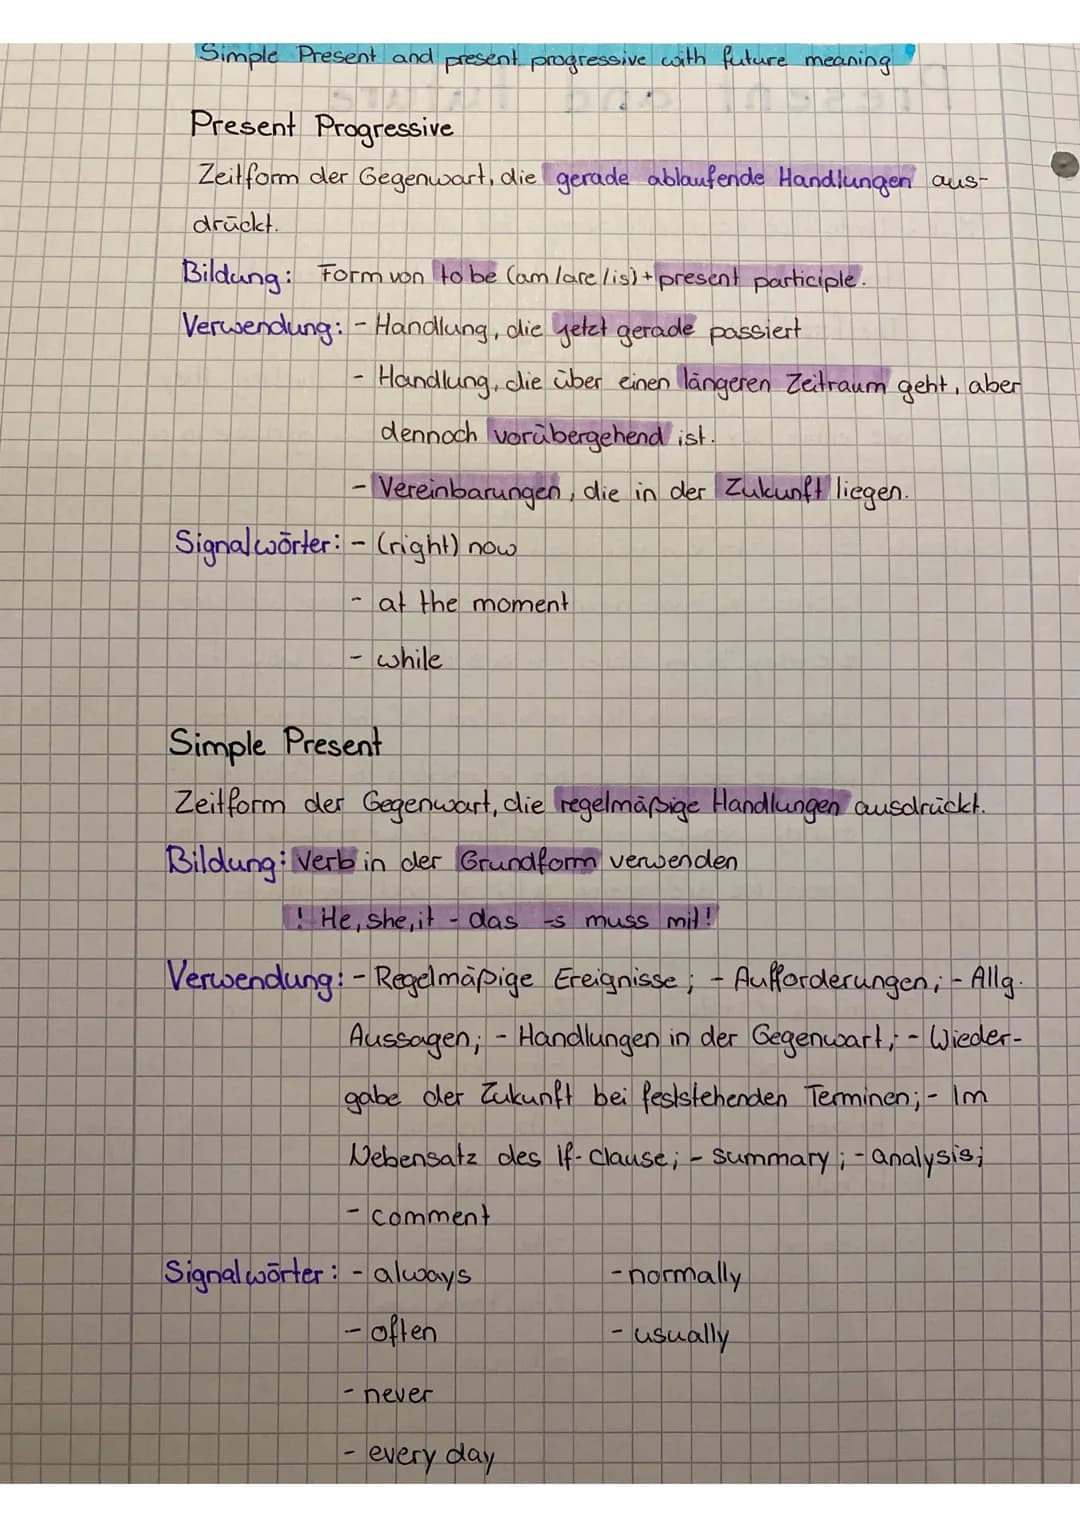 Simple Present and present progressive with future meaning
Present Progressive
Zeitform der Gegenwart, die gerade ablaufende Handlungen aus-
drückt.
Bildung: Form von to be (am/are/is) + present participle.
Verwendung: - Handlung, die jetzt gerade passiert
- Handlung, die über einen längeren Zeitraum geht, aber
dennoch vorübergehend ist.
- Vereinbarungen, die in der Zukunft liegen.
Signalwörter: - (right) now
- at the moment
- while
Simple Present
Zeitform der Gegenwart, die regelmäßige Handlungen ausdrückt.
Bildung: Verb in der Grundform verwenden
! He, she, it - das -s muss mit!
Verwendung: - Regelmäßige Ereignisse; - Aufforderungen; - Allg.
Aussagen; - Handlungen in der Gegenwart; - Wieder-
gabe der Zukunft bei feststehenden Terminen; - Im
Nebensatz des If-clause; - summary; - analysis;
- comment
Signalwörter: - always - normally
- often - usually
- never
- every day